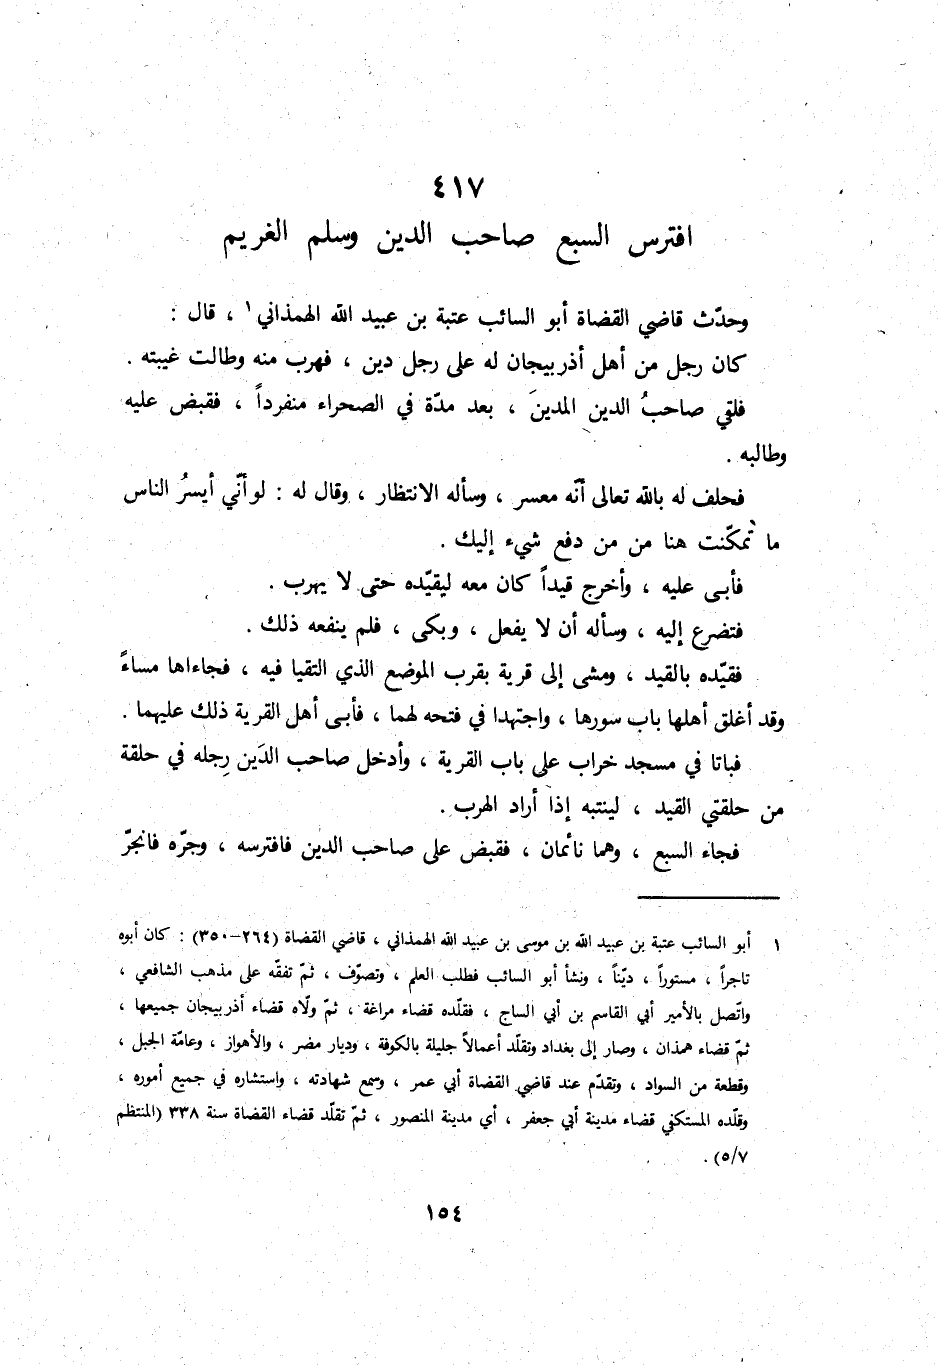 ٤١٧
افترس السبع صاحب الدين وسلم الغريم
وحدّث قاضي القضاة أبو السائب عتبة بن عبيد الله الهمذاني ١ ، قال :
كان رجل من أهل أذربيجان له على رجل دين ، فهرب منه وطالت غيبته .
فلقي صاحبُ الدين المدينَ ، بعد مدّة في الصحراء منفرداً ، فقبض عليه
وطالبه .
فحلف له بالله تعالى أنّه معسر ، وسأله الانتظار ، وقال له : لو أنّي أيسرُ الناس
ما تمكّنت هنا من من دفع شيء إليك .
فأبـى عليه ، وأخرج قيداً كان معه ليقيّده حتى لا يهرب .
فتضرع إليه ، وسأله أن لا يفعل ، وبكى ، فلم ينفعه ذلك .
فقيّده بالقيد ، ومشى إلى قرية بقرب الموضع الذي التقيا فيه ، فجاءاها مساءً
وقد أغلق أهلها باب سورها ، واجتهدا في فتحه لهما ، فأبـى أهل القرية ذلك عليهما .
فباتا في مسجد خراب على باب القرية ، وأدخل صاحب الدَين رِجله في حلقة
من حلقتي القيد ، لينتبه إذا أراد الهرب .
فجاء السبع ، وهما نائمان ، فقبض على صاحب الدين فافترسه ، وجرّه فانجرّ
١ أبو السائب عتبة بن عبيد الله بن موسى بن عبيد الله الهمذاني ، قاضي القضاة (٢٦٤–٣٥٠) : كان أبوه
تاجراً ، مستوراً ، ديّناً ، ونشأ أبو السائب فطلب العلم ، وتصوّف ، ثمّ تفقّه على مذهب الشافعي ،
واتّصل بالأمير أبي القاسم بن أبي الساج ، فقلّده قضاء مراغة ، ثمّ ولّاه قضاء أذربيجان جميعها ،
ثمّ قضاء همذان ، وصار إلى بغداد وتقلّد أعمالاً جليلة بالكوفة ، وديار مضر ، والأهواز ، وعامّة الجبل ،
وقطعة من السواد ، وتقدّم عند قاضي القضاة أبي عمر ، وسمع شهادته ، واستشاره في جميع أموره ،
وقلّده المستكفي قضاء مدينة أبي جعفر ، أي مدينة المنصور ، ثمّ تقلّد قضاء القضاة سنة ٣٣٨ (المنتظم
٥/٧) .
١٥٤